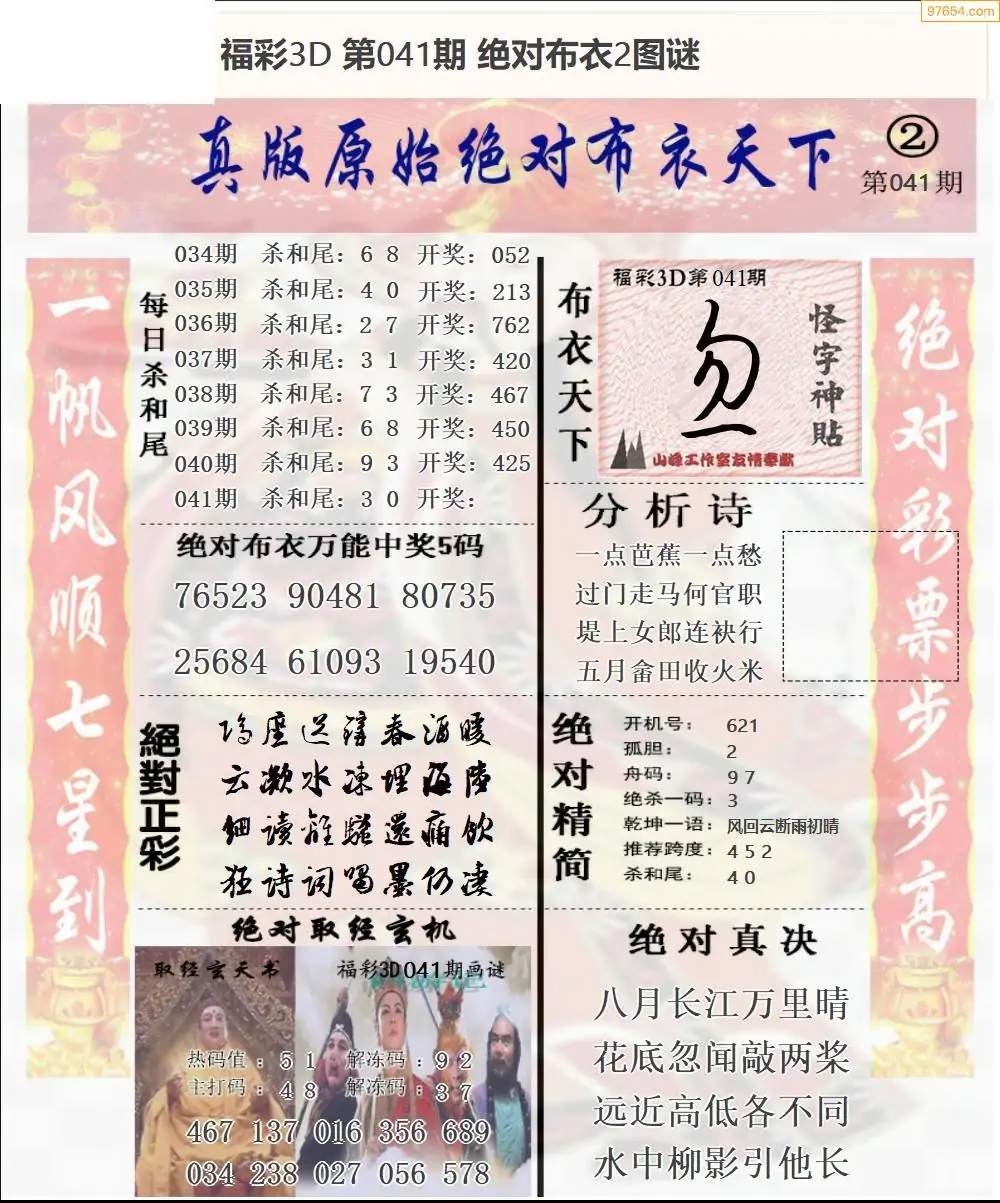 97654.com
福彩3D 第041期 绝对布衣2图谜
真版原始绝对布衣天下
②
第041期
一帆风顺七星到
每日杀和尾
034期 杀和尾：6 8 开奖：052
035期 杀和尾：4 0 开奖：213
036期 杀和尾：2 7 开奖：762
037期 杀和尾：3 1 开奖：420
038期 杀和尾：7 3 开奖：467
039期 杀和尾：6 8 开奖：450
040期 杀和尾：9 3 开奖：425
041期 杀和尾：3 0 开奖：
绝对布衣万能中奖5码
76523 90481 80735
25684 61093 19540
絕對正彩
云凝水凍埋海陸
細讀離騷還痛飲
狂诗词喝墨仍凄
绝对取经玄机
取经玄天书
福彩3D041期画谜
热码值：5 1 解冻码：9 2
主打码：4 8 解冻码：3 7
467 137 016 356 689
034 238 027 056 578
布衣天下
福彩3D第041期
怪字神贴
山峰工作室友情奉献
分析诗
一点芭蕉一点愁
过门走马何官职
堤上女郎连袂行
五月畬田收火米
绝对精简
开机号：621
孤胆：2
舟码：9 7
绝杀一码：3
乾坤一语：风回云断雨初晴
推荐跨度：4 5 2
杀和尾：4 0
绝对真决
八月长江万里晴
花底忽闻敲两桨
远近高低各不同
水中柳影引他长
绝对彩票步步高